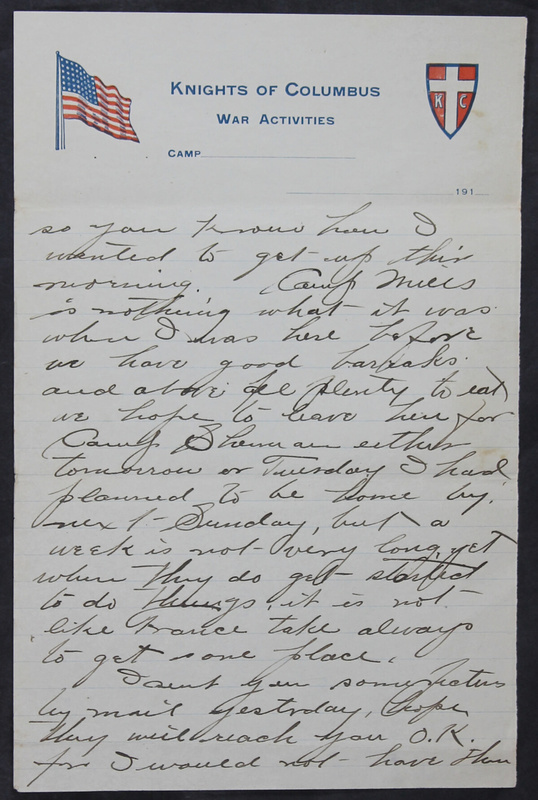 KNIGHTS OF COLUMBUS
WAR ACTIVITIES
K C
CAMP
191
so you know how I
wanted to get up this
morning. Camp Mills
is nothing what it was
when I was here before
we have good barraks.
and above all plenty to eat
we hope to leave here for
Camp Sherman either
tomorrow or Tuesday I had
planned to be home by
next Sunday, but a
week is not very long, yet
when they do get started
to do things, it is not
like France take always
to get some place.
I sent you some pictures
by mail yestrday, hope
they will reach you O.K.
for I would not have them